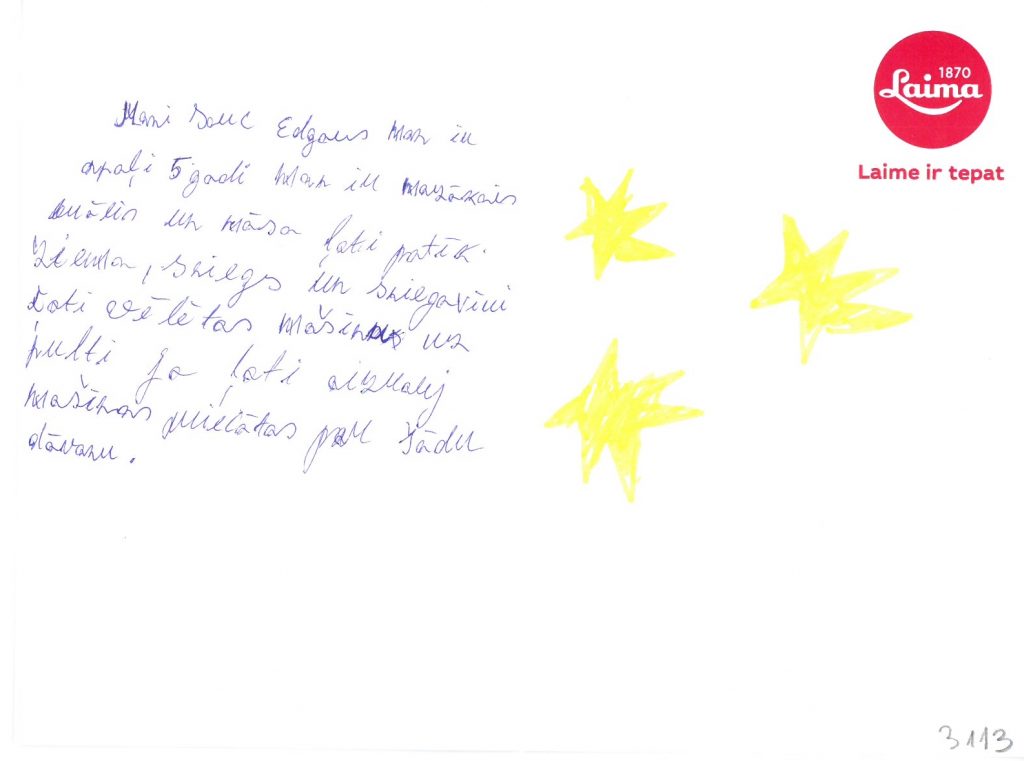 1870
Laima
Laime ir tepat
Mani sauc Edgars man ir
apaļi 5 gadi man ir mazākais
brālis un māsa ļoti patīk
ziema, sniegs un sniegavīri
ļoti vēlētos mašīnu uz
pulti Ja ļoti aizrauj
mašīnas priecātos par šādu
dāvanu.
3113